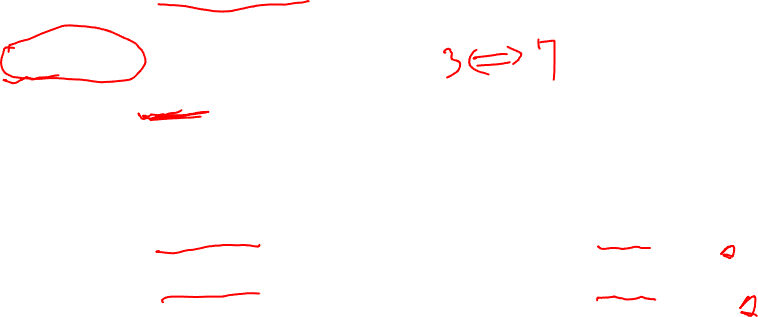 3 ⇔ 7